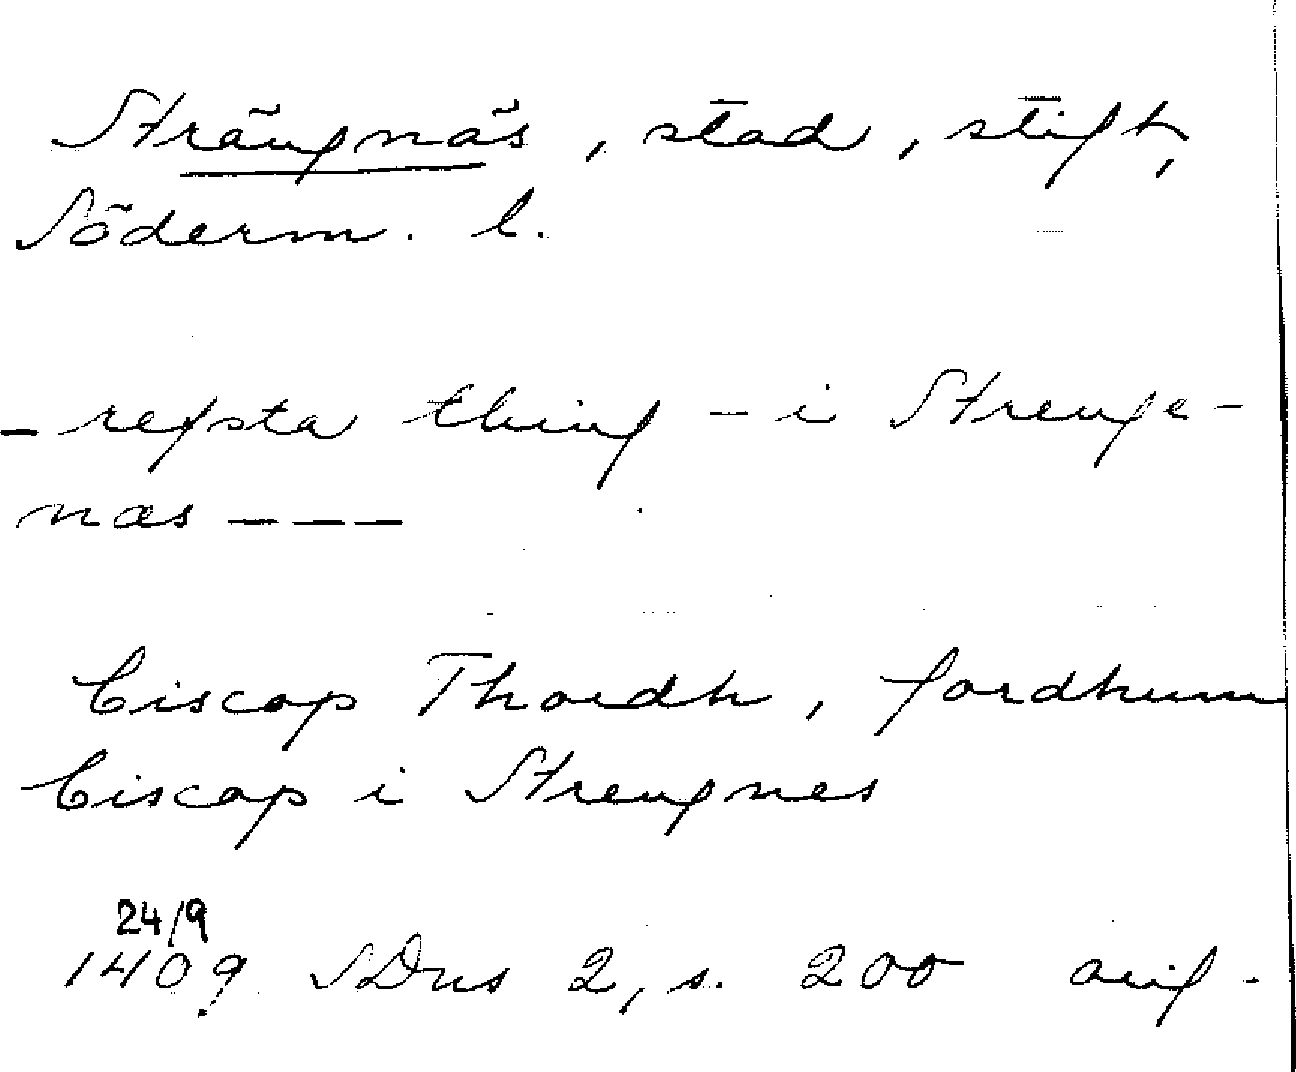 Strängnäs, stad, stift,
Söderm. l.
- refsta thing - i Strenge-
næs - - -
biscop Thordh, fordhum
biscop i Strengnes
24/9
1409 SDns 2, s. 200 orig.